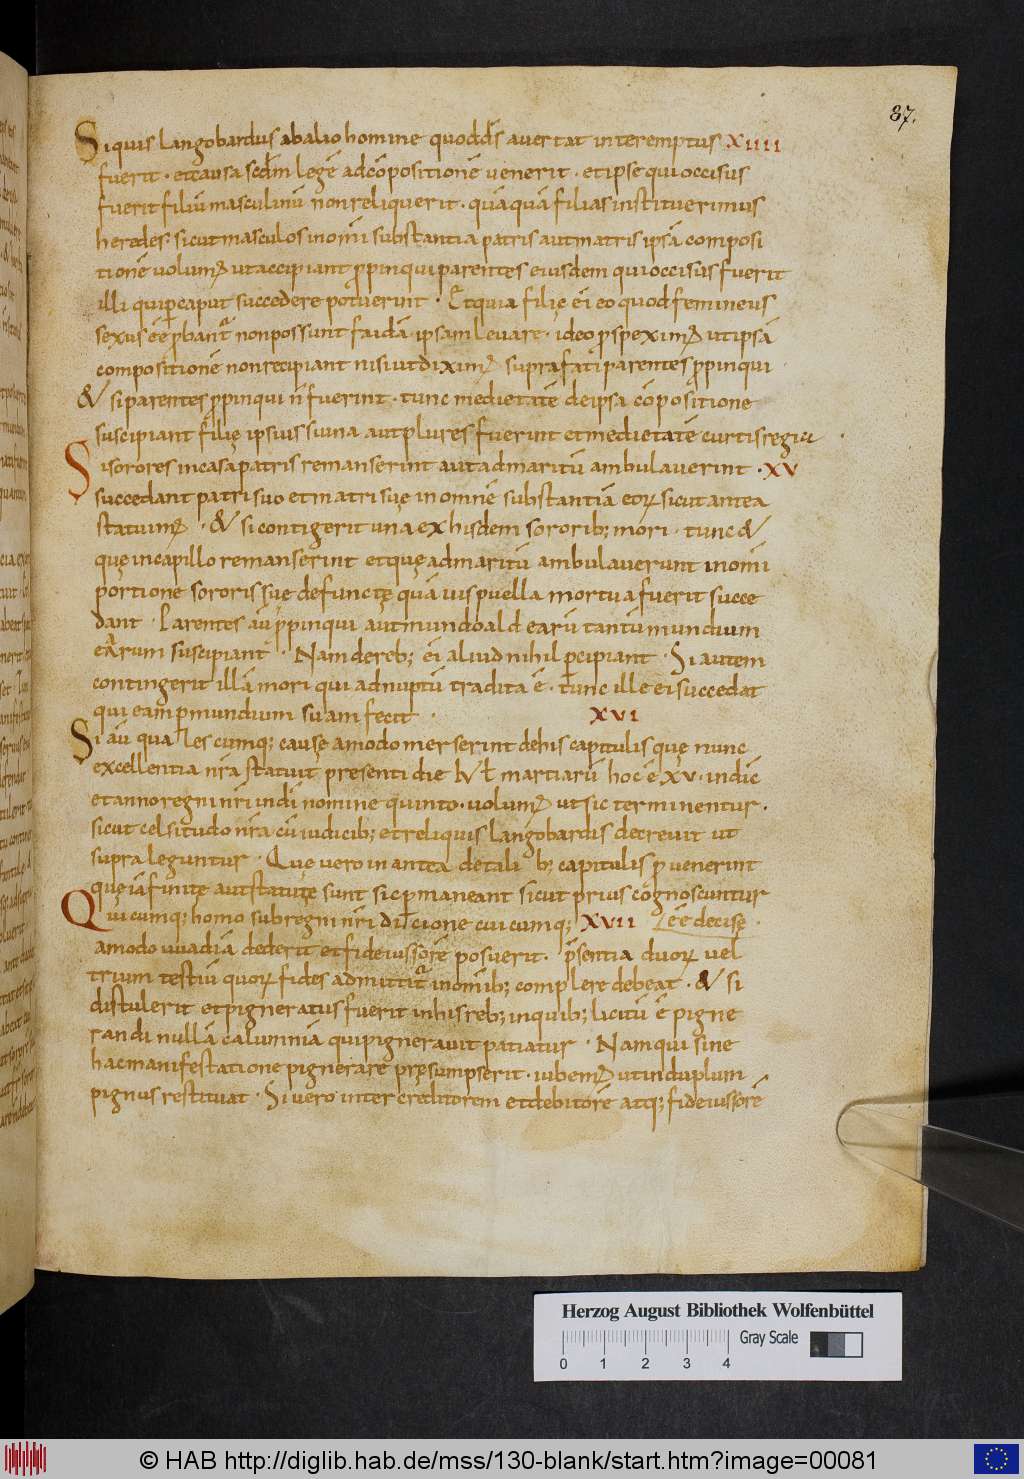 37.
Siquis langobardus abalio homine quodds avertat interemptus XIIII
fuerit · etcausa scdm legē adcōpositionē venerit · etipse quioccisus
fuerit filiū masculinū nonreliquerit · quāquā filias instituerimus
heredes sicutmasculos inomī substantia patris autmatris ipsā composi
tionē volum; utaccipiant ꝓpinqui parentes eiusdem quioccisus fuerit
illi quiꝑcaput succedere potuerint · Etquia filię eī eo quod femineus
sexus eē ꝓbant nonpossunt faidā ipsam levare · ideo ꝓspexim; utipsā
compositionē nonrecipiant nisiutdixim; suprafati parentes ꝓpinqui
& siparentes ꝓpinqui n̄ fuerint · tunc medietatē deipsa cōpositione
suscipiant filię ipsius siuna autplures fuerint etmedietatē curtisregia
Sisorores incasapatris remanserint autadmaritū ambulaverint · XV
succedant patri suo etmatri suę in omnē substantiā eoꝝ sicutantea
statuim; · & si contigerit una ex hisdem sororib; mori · tunc &
quę incapillo remanserint etquę admaritū ambulaverunt inomī
portione sororis suę defunctę quā uispuella mortuafuerit succe
dant · Parentes aū ꝓpinqui aut mundoald earū tantū mundium
eArum suscipiant · Nam dereb; eī aliud nihil ꝑcipiant · Si autem
contingerit illā mori qui adnuptū tradita ē · tunc ille ei succedat
qui eam ꝑmundium suam fecit · XVI
Si aū quales cumq; causę amodo merserint dehis capitulis quę nunc
excellentia nr̄a statuit presenti die kł martiarū hoc ē XV · indic̄
etanno regni nr̄i indī nomine quinto · volum; utsic terminentur ·
sicut celsitudo nr̄a cū iudicib; etreliquis langobardis decrevit ut
supra leguntur · Quę vero in antea detali b; capitulis ꝑvenerint
quę iāfinitę autstatutę sunt sicꝑmaneant sicut prius cognoscuntur
Quicumq; homo subregni nr̄i diticione cuicumq; XVII
amodo vuadiā dederit etfideiussorē posuerit · p̄sentia duoꝝ vel
trium testiū quoꝝ fides admittit inomīb; complere debeat · & si
distulerit etpigneratus fuerit inhisreb; inquib; licitū ē pigne
randi nullā calumniā quipigneravit patiatur · Namqui sine
hacmanifestatione pignerare pręsumpserit · iubem; utinduplum
pignus restituat · Si vero inter creditorem etdebitorē atq; fideiussorē
Herzog August Bibliothek Wolfenbüttel
Gray Scale
0 1 2 3 4
© HAB http://diglib.hab.de/mss/130-blank/start.htm?image=00081